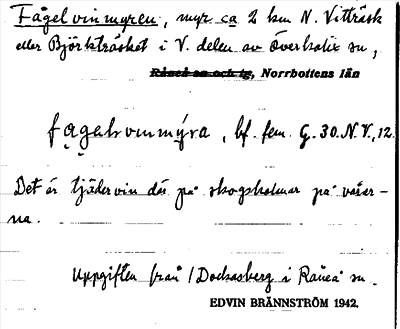 Fågelvinmyren, myr ca 2 km N. Vitträsk
eller Björkträsket i V. delen av Överkalix sn,
Råneå sn och tg, Norrbottens län
fagalvinmýra, bf. fem. G. 30. N.V., 12.
Det är tjädervin där på skogsholmar på vårar-
na.
Uppgiften från Docksasberg i Råneå sn.
EDVIN BRÄNNSTRÖM 1942.